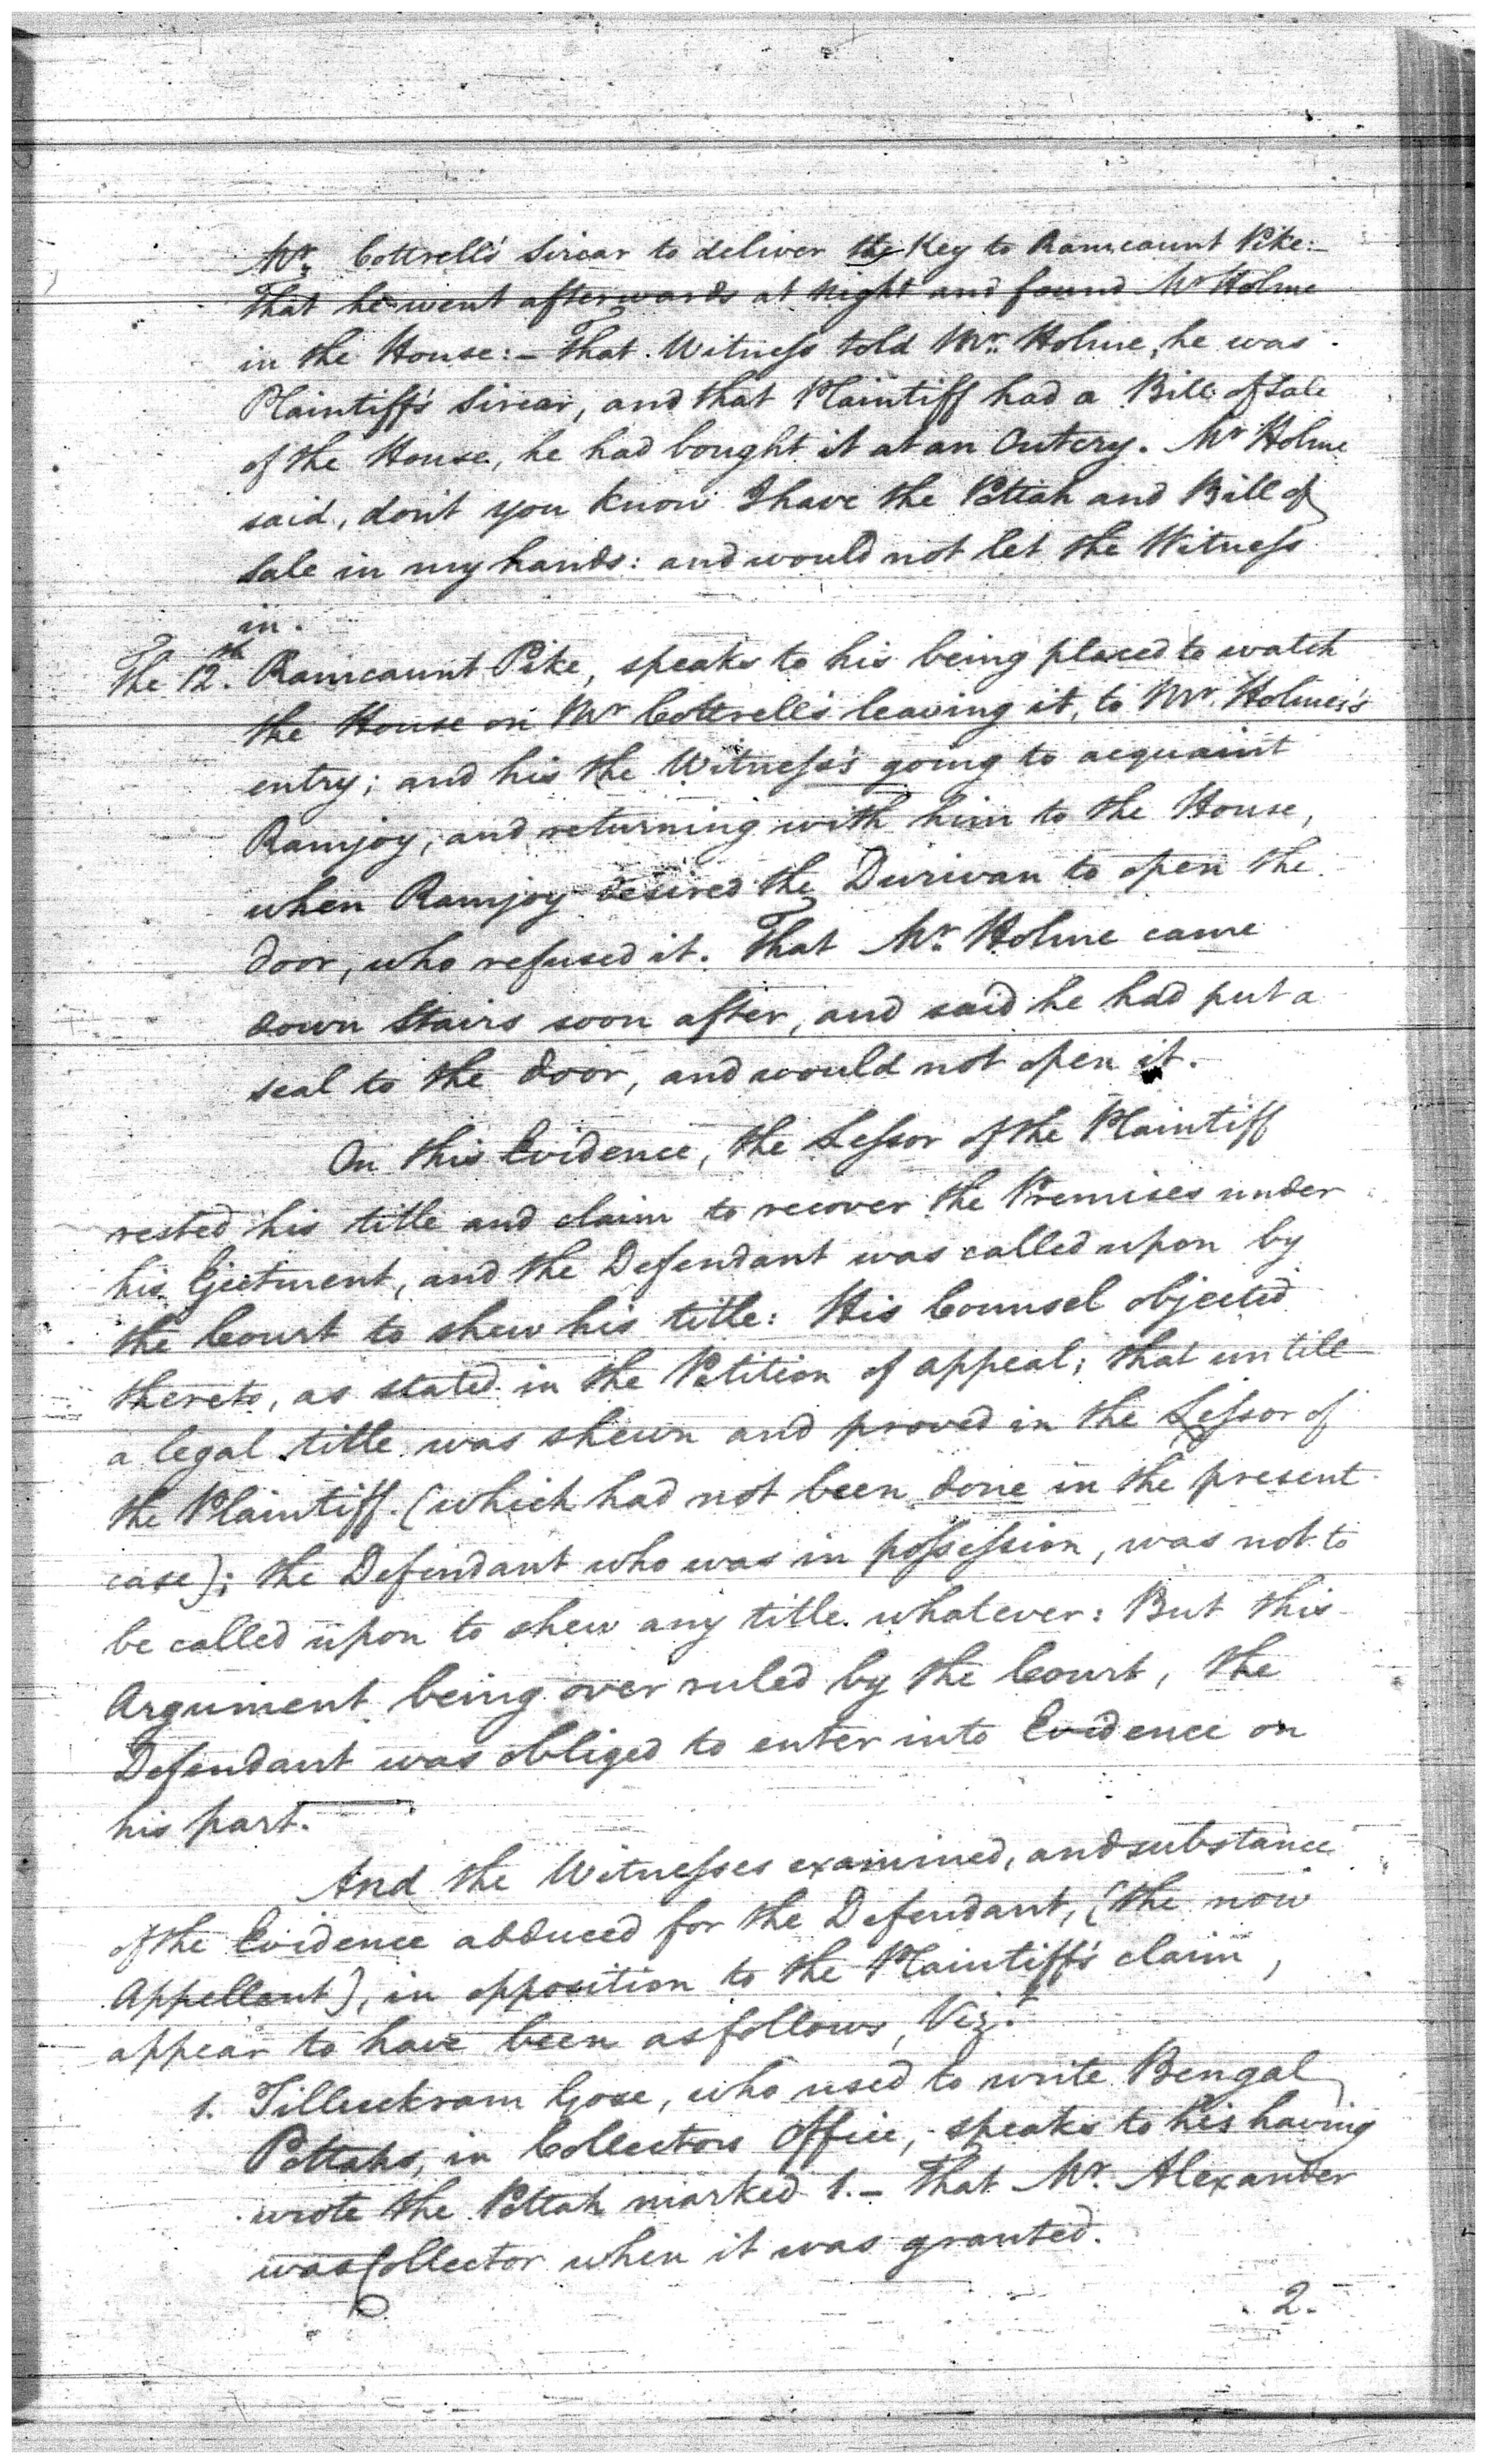 Mr. Cottrell's Sircar to deliver the Key to Ramcaunt Pike:–
That he went afterwards at Night and found Mr Holme
in the House:– That Witness told Mr. Holme, he was
Plaintiff's Sircar, and that Plaintiff had a Bill of Sale
of the House, he had bought it at an Outcry. Mr Holme
said, don't you know I have the Pottah and Bill of
Sale in my hands: and would not let the Witness
in.
The 12th. Ramcaunt Pike, speaks to his being placed to watch
the House on Mr Cottrell's leaving it, to Mr. Holmes's
entry; and his the Witness's going to acquaint
Ramjoy, and returning with him to the House,
when Ramjoy desired the Durwan to open the
door, who refused it. That Mr. Holme came
down Stairs soon after, and said he had put a
seal to the door, and would not open it.
On this Evidence, the Lessor of the Plaintiff
rested his title and claim to recover the Premises under
his Ejectment, and the Defendant was called upon by
the Court to shew his title: His Counsel objected
thereto, as stated in the Petition of appeal; that untill
a legal title was shewn and proved in the Lessor of
the Plaintiff (which had not been done in the present
case); the Defendant who was in possession, was not to
be called upon to shew any title whatever: But this
Argument being over ruled by the Court, the
Defendant was obliged to enter into Evidence on
his part.
And the Witnesses examined, and substance
of the Evidence adduced for the Defendant, (the now
Appellant), in opposition to the Plaintiff's claim,
appear to have been as follows, Vizt.
1. Tilluckram Gose, who used to write Bengal
Pottahs, in Collectors Office, speaks to his having
wrote the Pottah marked 1.– That Mr. Alexander
was Collector when it was granted.
2.